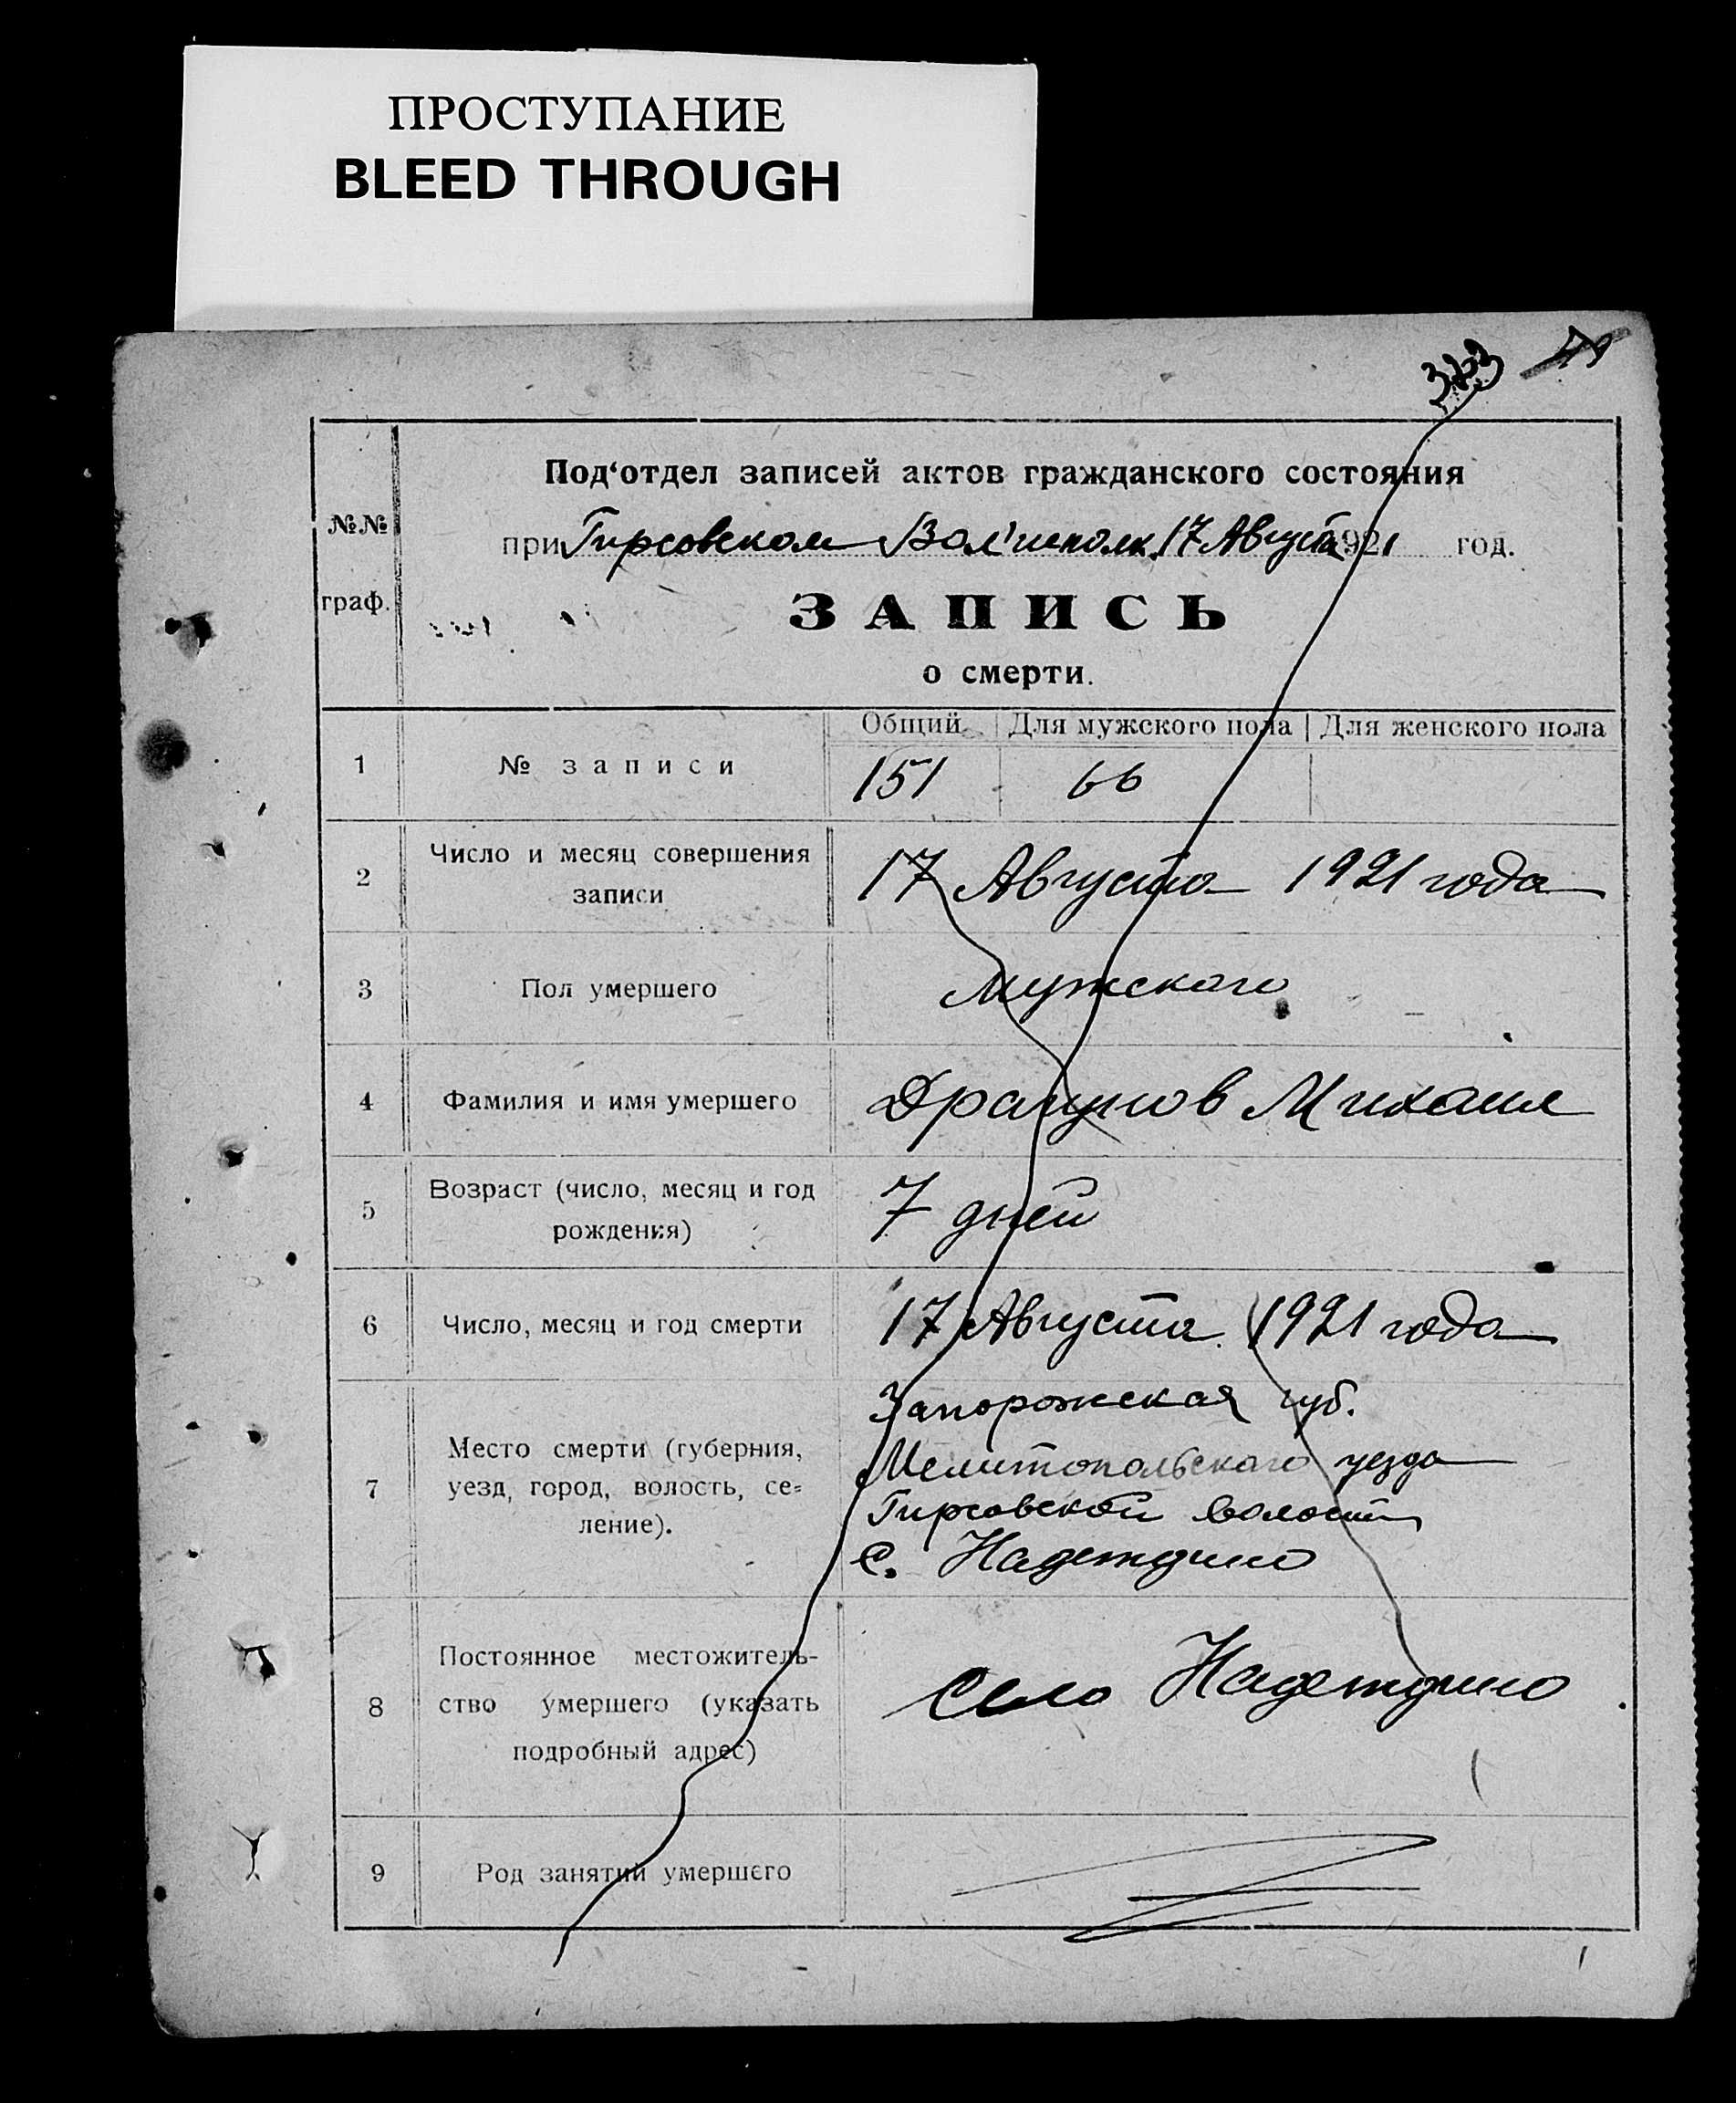 ПРОСТУПАНИЕ
BLEED THROUGH
Под‘отдел записей актов гражданского состояния
при Гирсовском Вол'исполк. 17 Августа 1921 год.
№№
граф.
ЗАПИСЬ
о смерти.
Общий Для мужского пола Для женского пола
1 № записи 151 66
2 Число и месяц совершения
записи
17 Августа 1921 года
3 Пол умершего Мужского
4 Фамилия и имя умершего Драгунов Михаил
5 Возраст (число, месяц и год
рождения)
7 дней
6 Число, месяц и год смерти 17 Августа 1921 года
7 Место смерти (губерния,
уезд, город, волость, се=
ление).
Запорожская губ.
Мелитопольского уезда
Гирсовской волости
с. Надеждино
8 Постоянное местожитель-
ство умершего (указать
подробный адрес)
Село Надеждино
9 Род занятий умершего